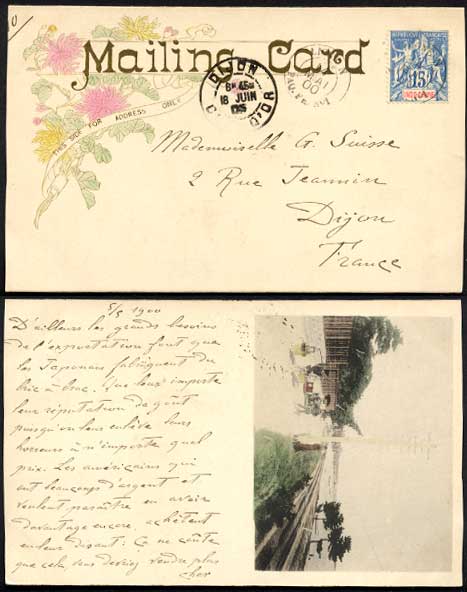 Mailing Card
THIS SIDE FOR ADDRESS ONLY
DIJON
18 JUIN
REPUBLIQUE FRANCAISE
15
INDO-CHINE
Mademoiselle G. Suisse
2 Rue Jeannin
Dijon
France
5/5 1900
D'ailleurs les grands besoins
de l'exportation font que
les Japonais fabriquent du
bric à brac. Que leur importe
leur réputation de goût
puisqu'on leur enlève leurs
horreurs à n'importe quel
prix. Les américains qui
ont beaucoup d'argent et
veulent paraître en avoir
davantage encore, achètent
en leur disant: Ça ne coûte
que cela, vous devriez vendre plus
cher